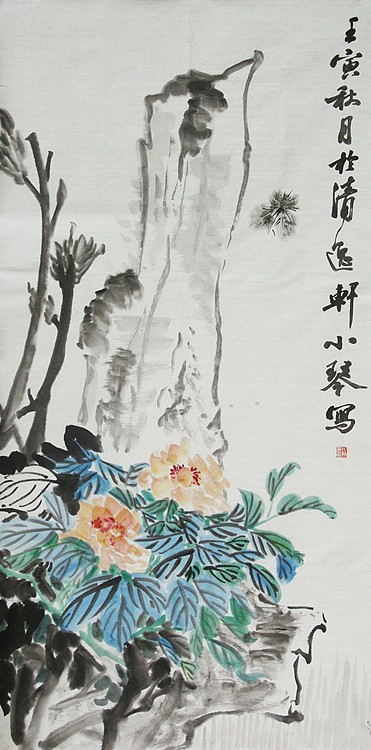 壬寅秋月於清逸軒小琴寫